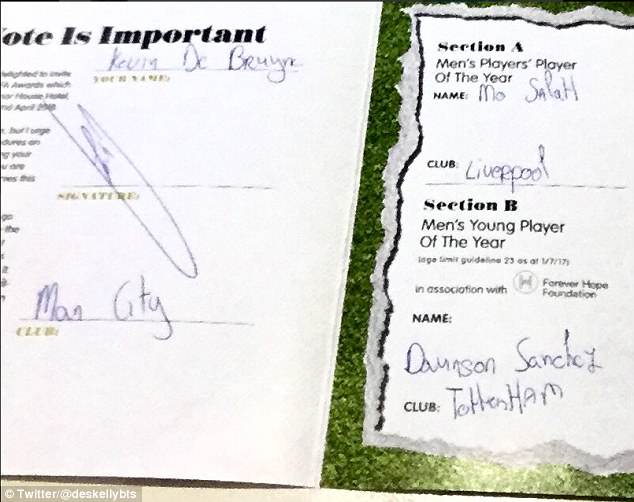 ote Is Important
Kevin De Bruyne
YOUR NAME:
elighted to invite
A Awards which
or House Hotel,
nd April 2018
, but I urge
dures on
ng your
u are
ves this
SIGNATURE:
go
the
it
Man City
CLUB:
Section A
Men's Players' Player
Of The Year
NAME: Mo SalaH
CLUB: Liverpool
Section B
Men's Young Player
Of The Year
(age limit guideline 23 as at 1/7/17)
in association with Forever Hope
Foundation
NAME:
Davinson Sanchez
CLUB: TottenHAM
© Twitter/@deskellybts